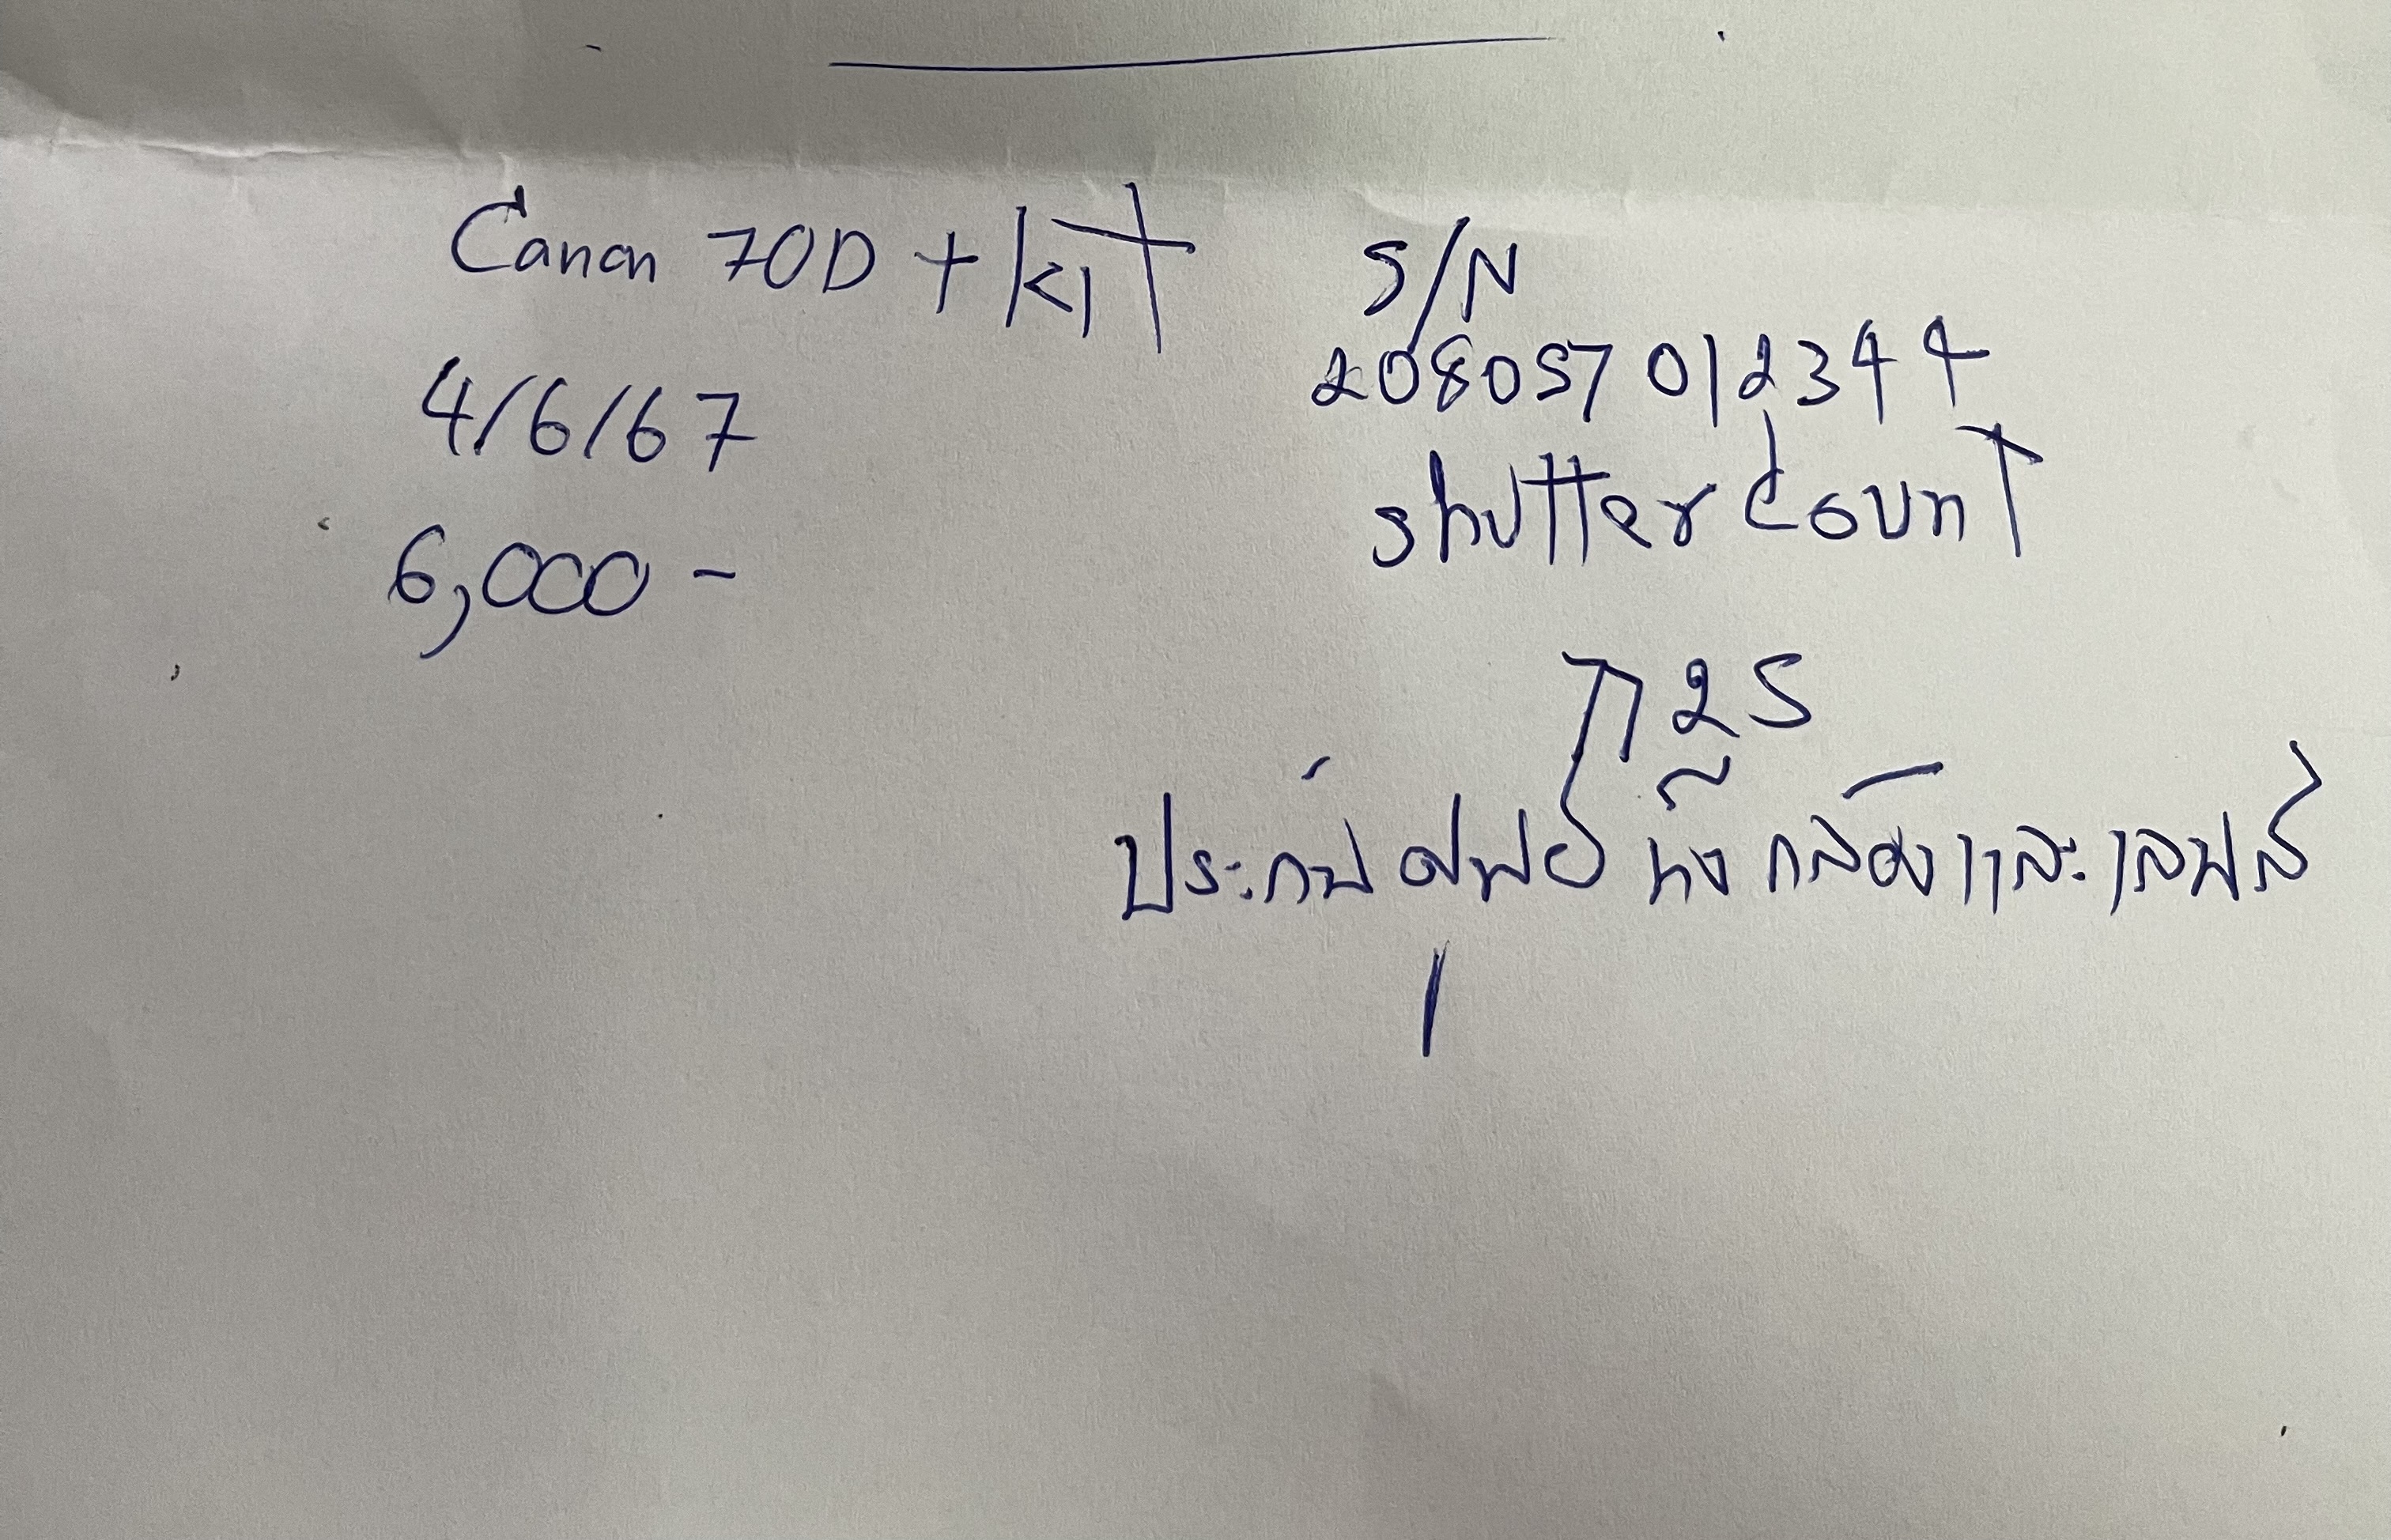 Canon 70D + KIT
4/6/67
6,000 -
S/N
208057012344
shutter Count
7125
ประกัน ศูนย์ ทั้ง กล้อง และ เลนส์